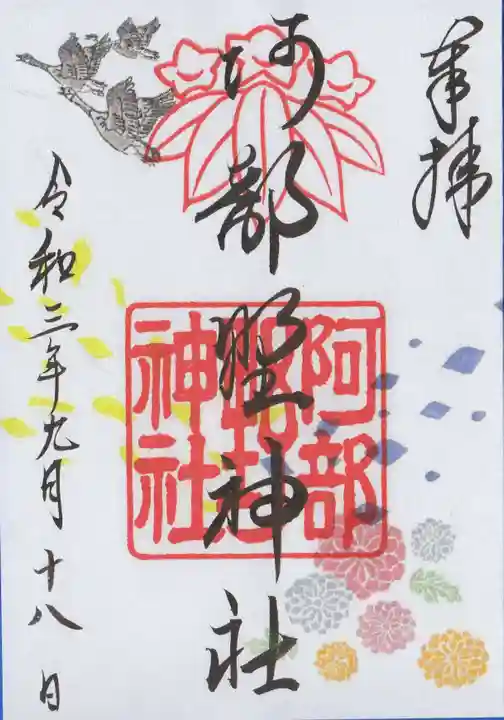 奉拝
阿部野神社
阿部
神社
令和三年九月十八日